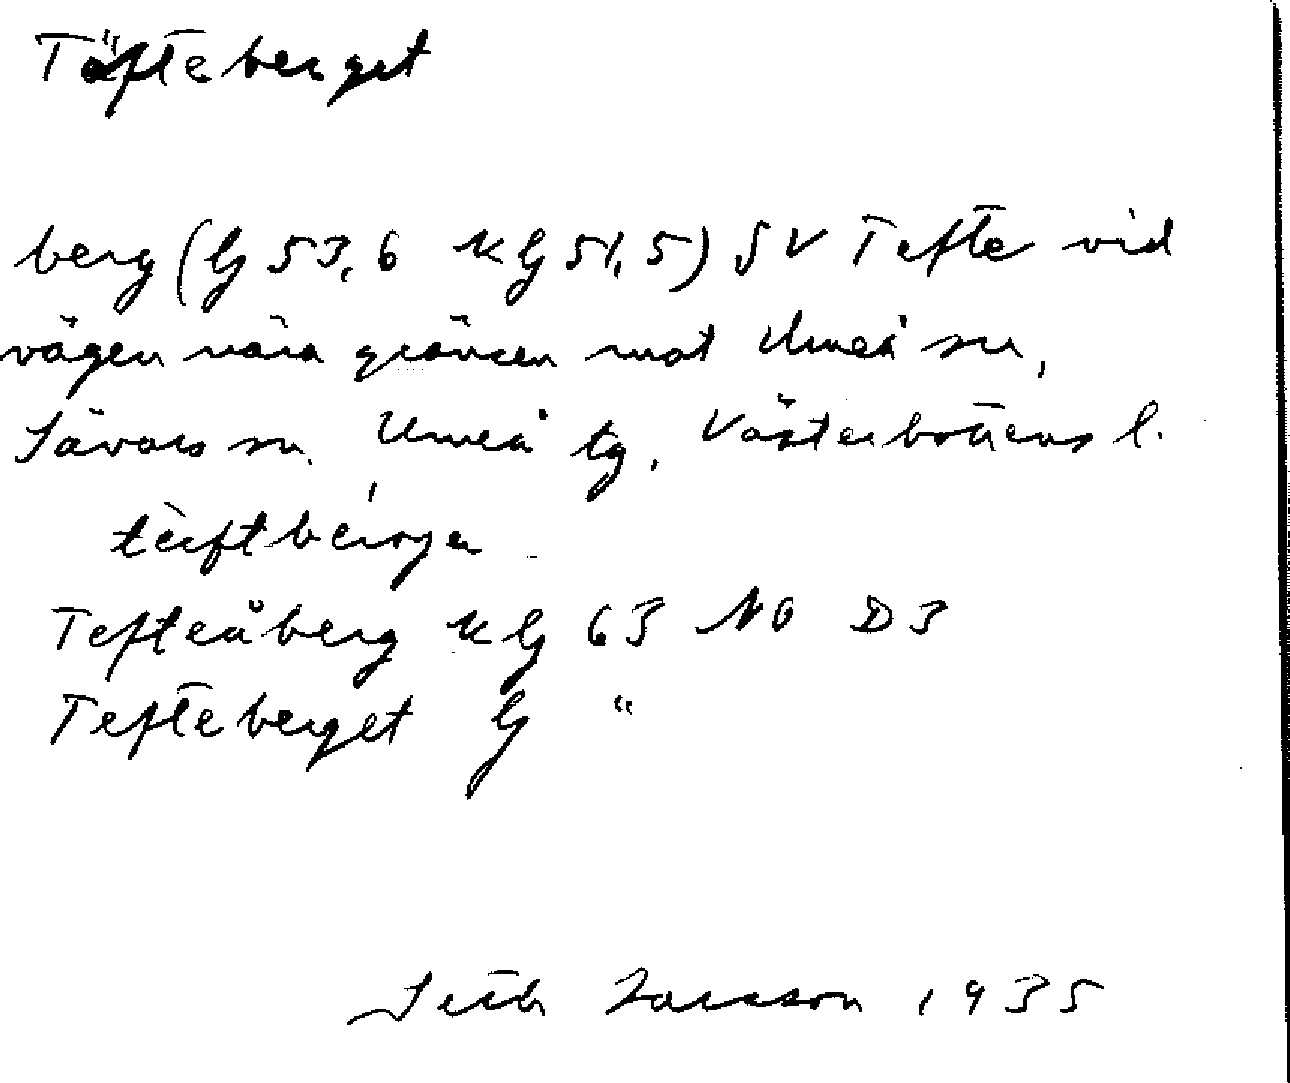 Täfteberget
berg (G 53,6 kG 51,5) SV Tefte vid
vägen nära gränsen mot Umeå sn,
Sävars sn, Umeå tg, Västerbottens l.
Tefteåberg kG 63 NO D3
Tefteberget G "
Seth Larsson 1935